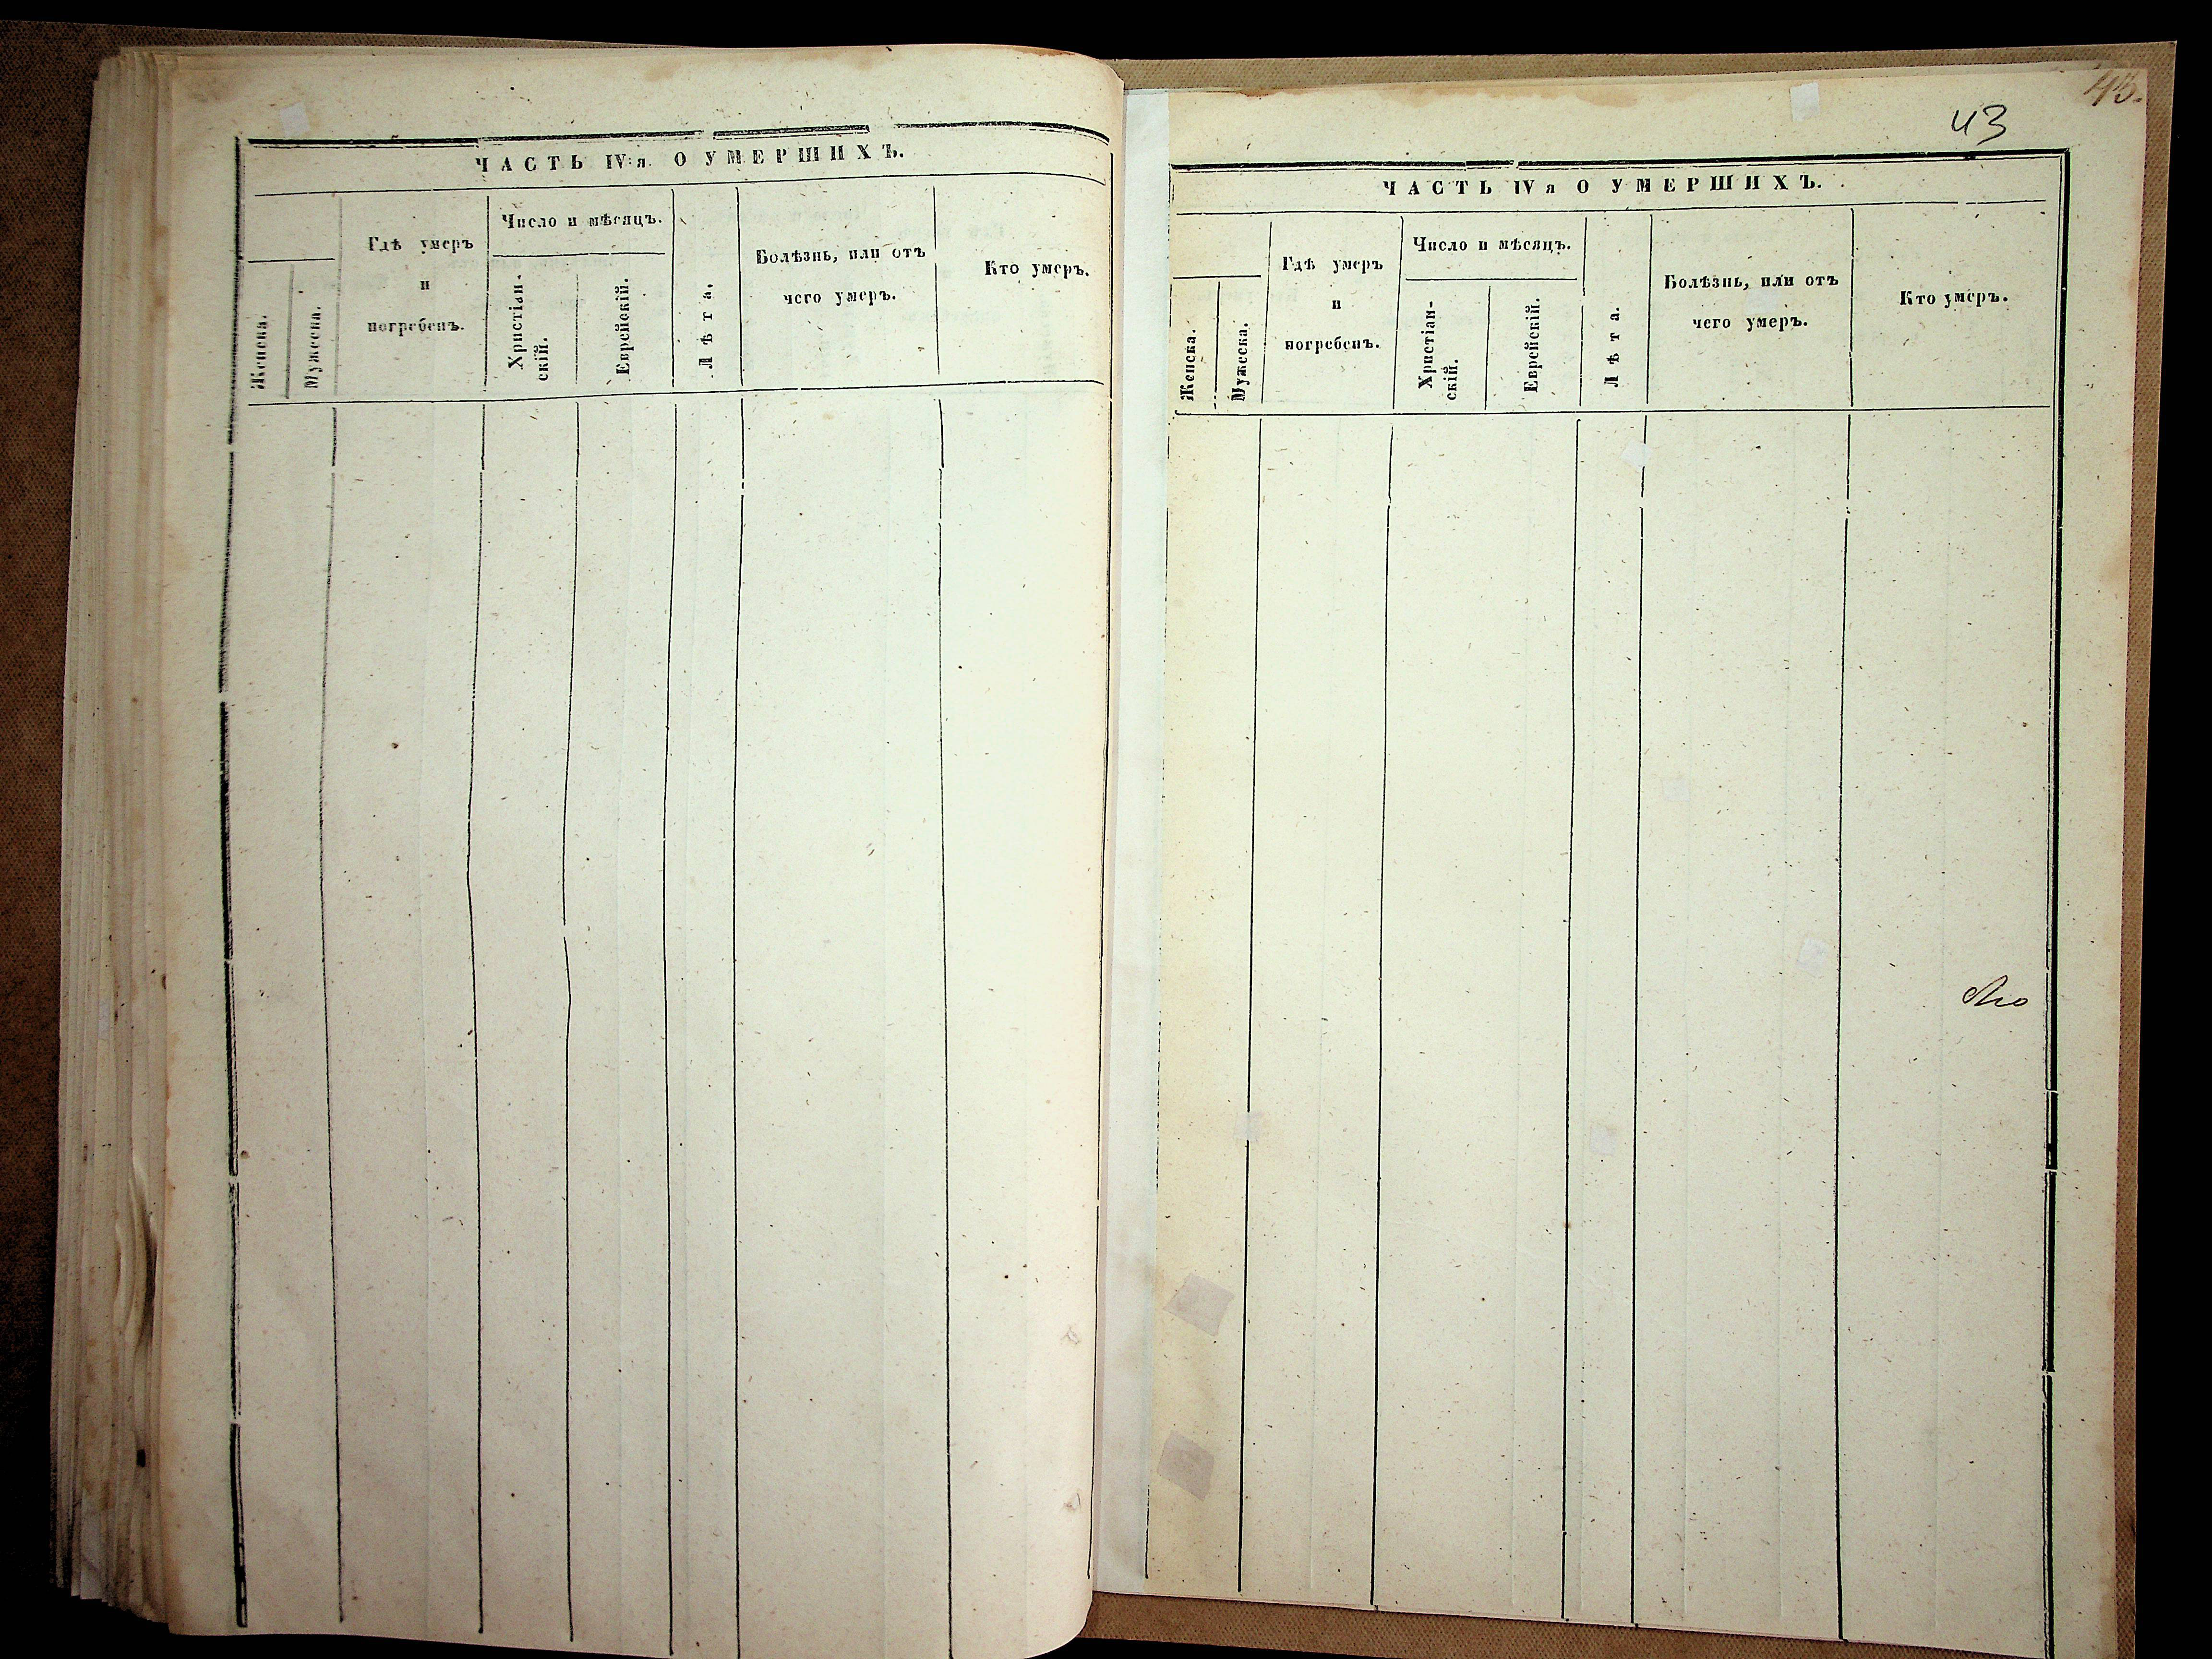 ЧАСТЬ IV:я О УМЕРШИХЪ.
Женска.
Мужеска.
Гдѣ умеръ
и
погребенъ.
Число и мѣсяцъ.
Христіан-
скій.
Еврейскій.
Лѣта.
Болѣзнь, или отъ
чего умеръ.
Кто умеръ.
43
ЧАСТЬ IV я О УМЕРШИХЪ.
Женска.
Мужеска.
Гдѣ умеръ
и
погребенъ.
Число и мѣсяцъ.
Христіан-
скій.
Еврейскій.
Лѣта.
Болѣзнь, или отъ
чего умеръ.
Кто умеръ.